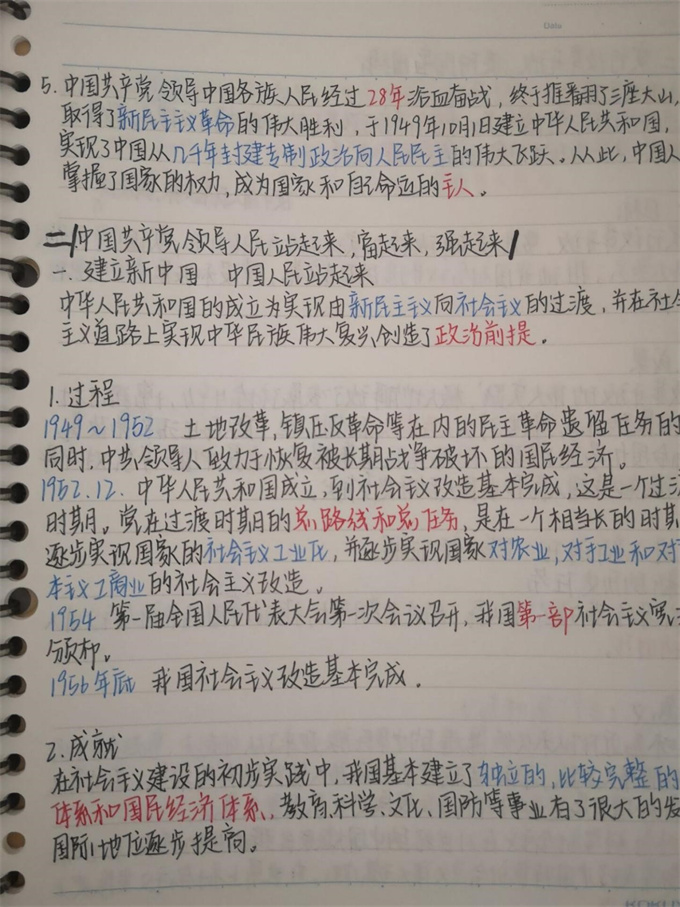 Date
5. 中国共产党领导中国各族人民经过28年浴血奋战，终于推翻了三座大山，
取得了新民主主义革命的伟大胜利，于1949年10月1日建立中华人民共和国，
实现了中国从几千年封建专制政治向人民民主的伟大飞跃。从此，中国人
掌握了国家的权力，成为国家和自己命运的主人。
二/中国共产党领导人民站起来，富起来，强起来/
一. 建立新中国 中国人民站起来
中华人民共和国的成立为实现由新民主主义向社会主义的过渡，并在社会
主义道路上实现中华民族伟大复兴创造了政治前提。
1. 过程
1949～1952 土地改革，镇压反革命等在内的民主革命遗留任务的
同时，中共领导人民致力于恢复被长期战争破坏的国民经济。
1952.12. 中华人民共和国成立，到社会主义改造基本完成，这是一个过渡
时期。党在过渡时期的总路线和总任务，是在一个相当长的时期
逐步实现国家的社会主义工业化，并逐步实现国家对农业，对手工业和对
本主义工商业的社会主义改造。
1954 第一届全国人民代表大会第一次会议召开，我国第一部社会主义宪法
颁布。
1956年底 我国社会主义改造基本完成．
2. 成就
在社会主义建设的初步实践中，我国基本建立了独立的，比较完整的
体系和国民经济体系，教育、科学、文化、国防等事业有了很大的发
国际地位逐步提高。